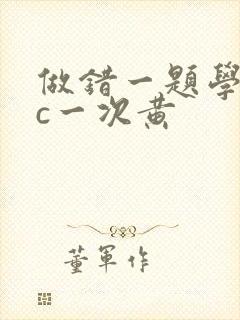 做錯一題學
c一次黄
董軍作